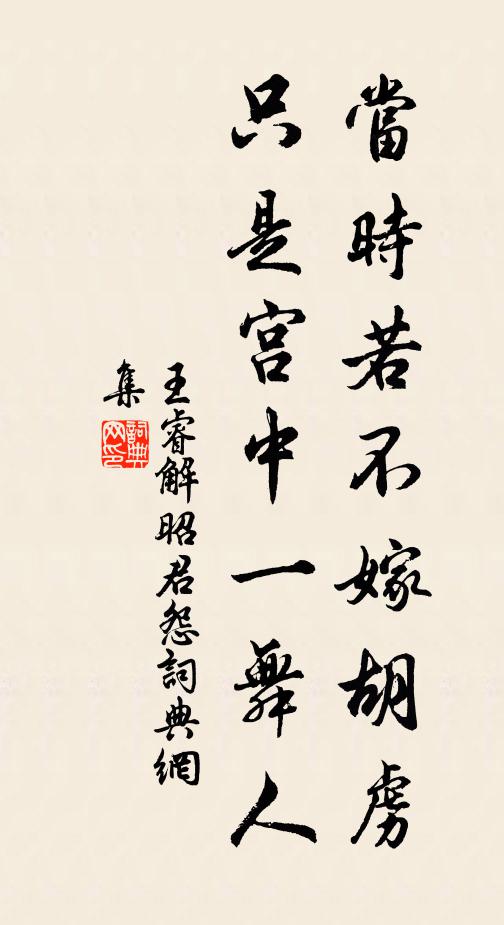 當時若不嫁胡虜
只是宫中一舞人
王睿解昭君怨詞典網
集
詞典
网印